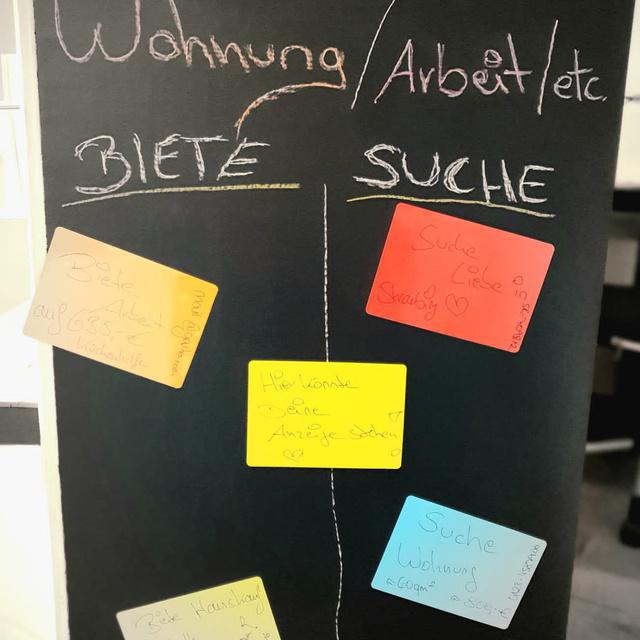 Wohnung / Arbeit / etc.
BIETE
SUCHE
Biete
Arbeit
auf 635,- €
Suche
Liebe
in
Straubing ♡
Hier könnte
Deine
Anzeige stehen
♡
Suche
Wohnung
≈60qm²
Biete Hauskauf